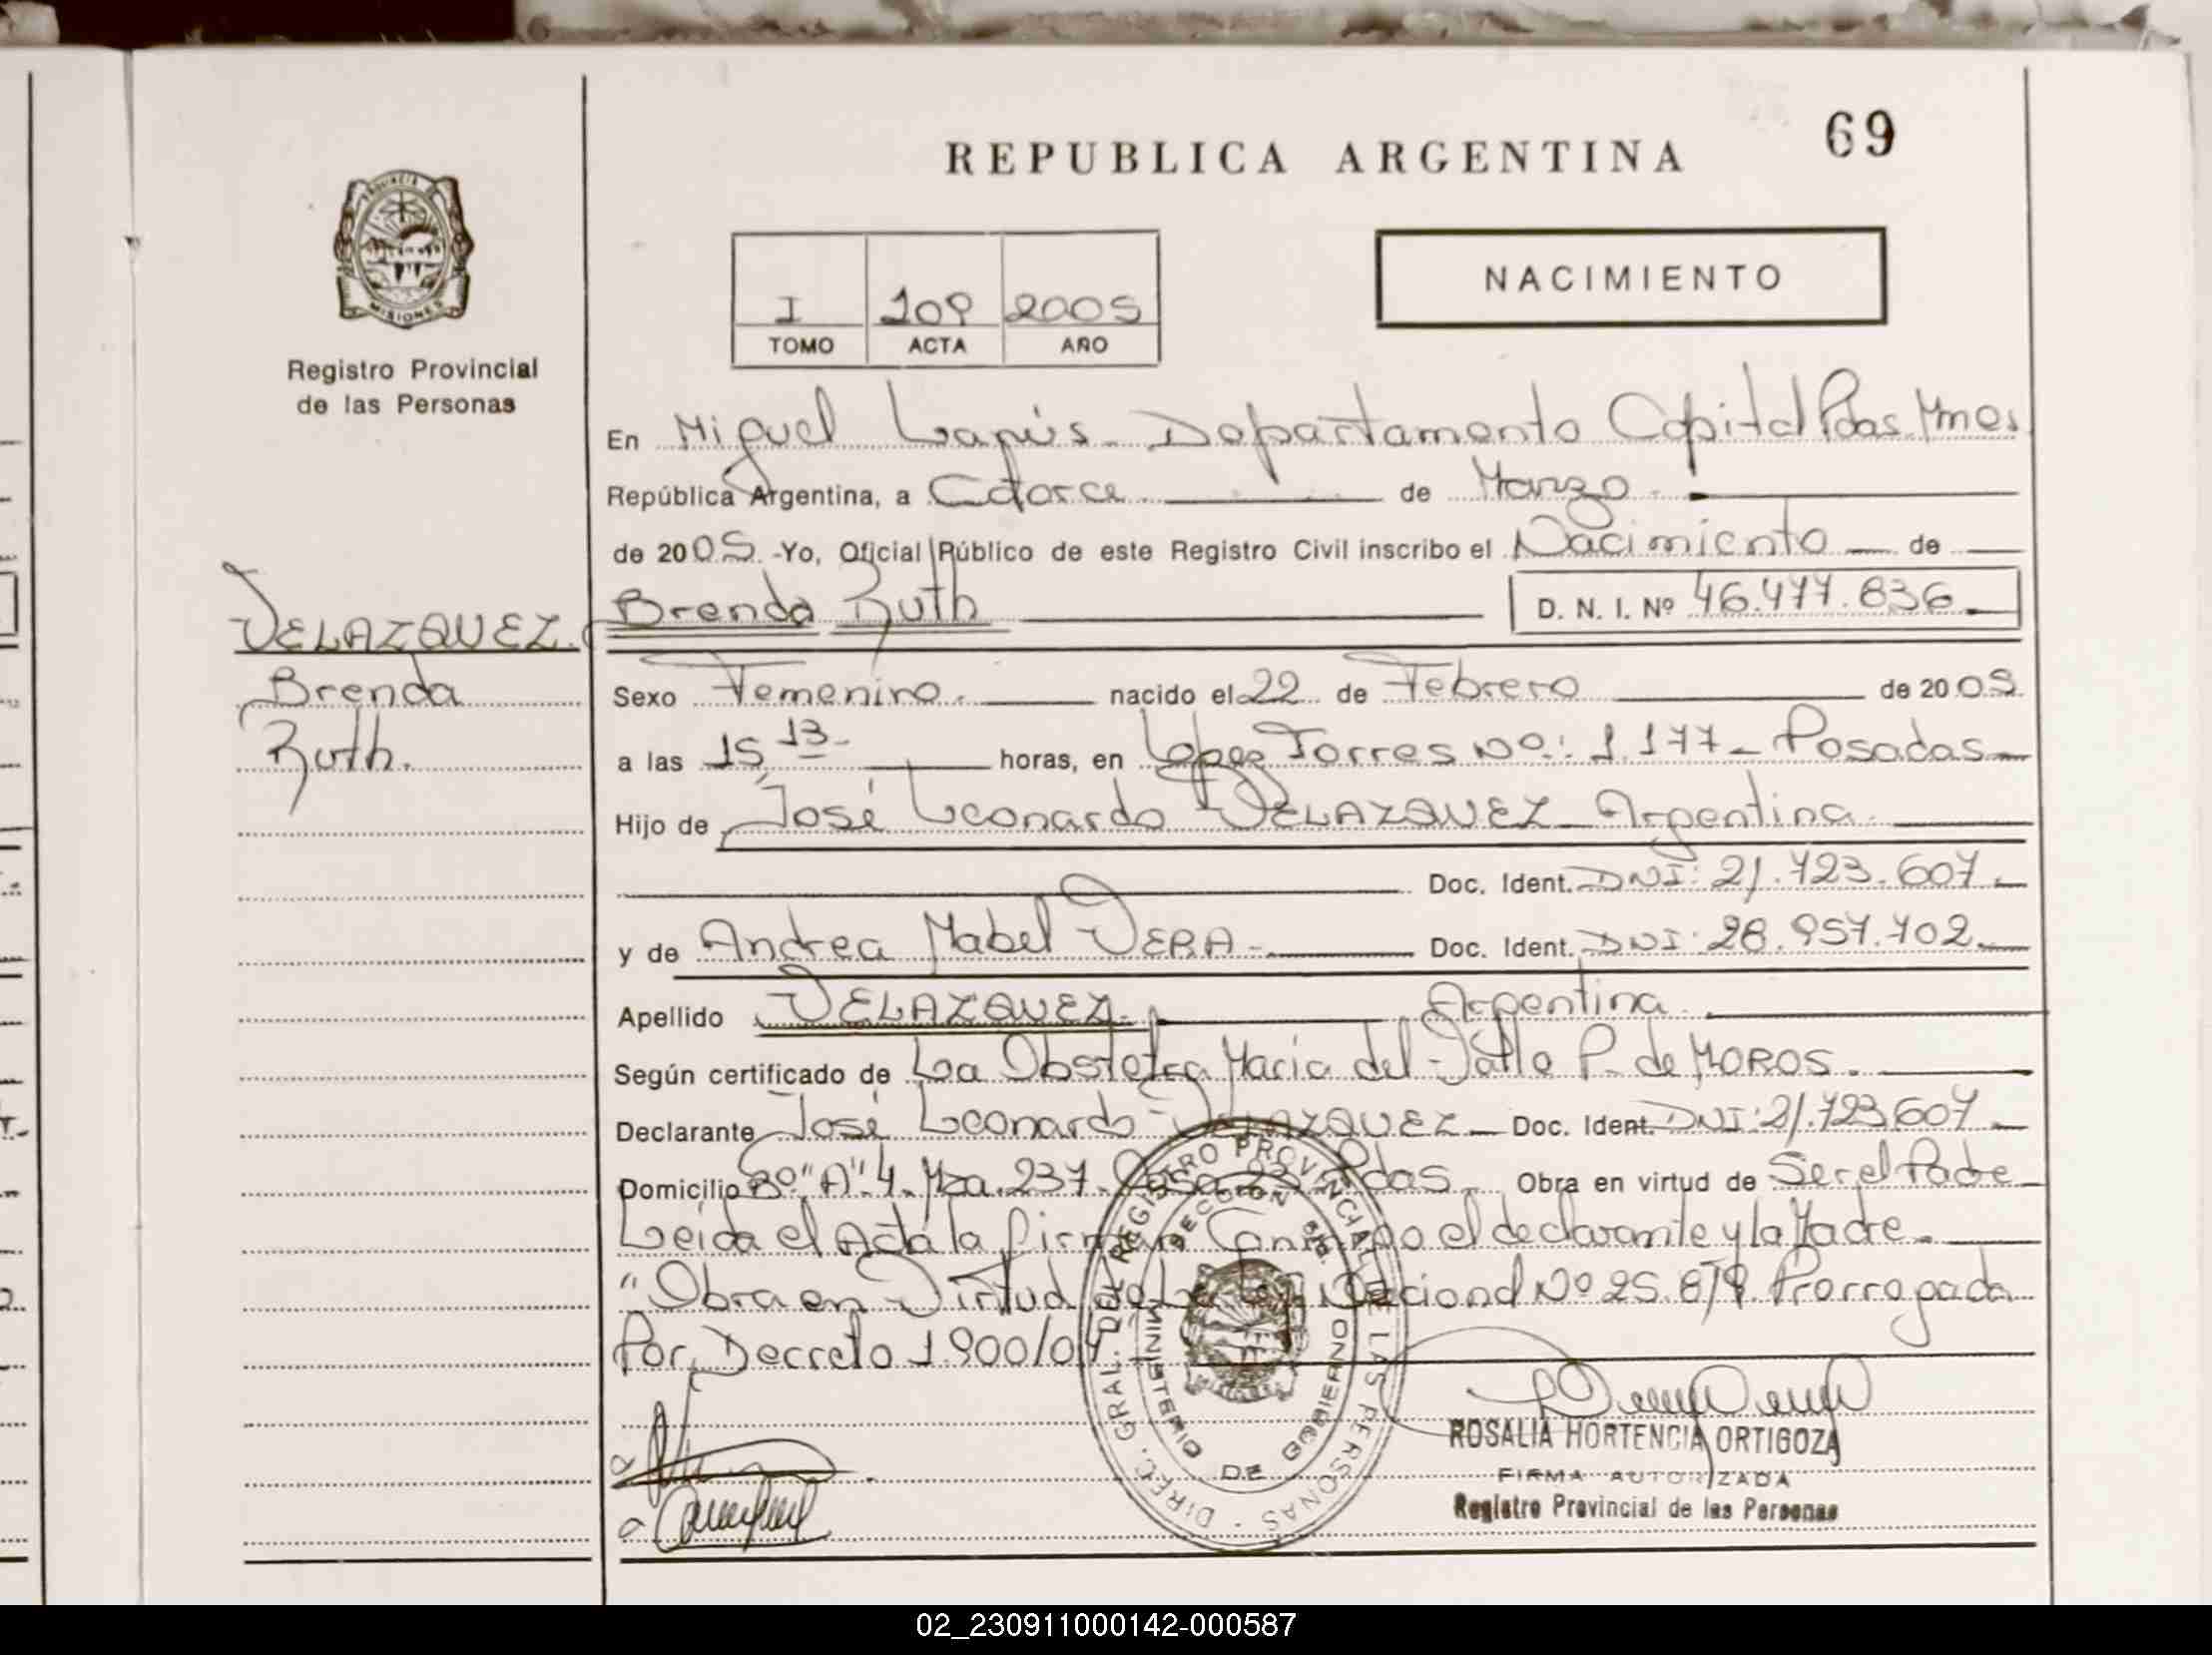 69
REPUBLICA ARGENTINA
PROVINCIA DE
MISIONES
Registro Provincial
de las Personas
NACIMIENTO
I 109 2005
TOMO ACTA AÑO
En Miguel Lanús - Departamento Capital Pdas. Mnes.
República Argentina, a Catorce de Marzo
de 2005. -Yo, Oficial Público de este Registro Civil inscribo el Nacimiento de
Brenda Ruth D. N. I. Nº 46.477.836
VELAZQUEZ.
Brenda
Ruth.
Sexo Femenino. nacido el 22 de Febrero de 2005.
a las 15,13- horas, en López Torres Nº: 1.177- Posadas
Hijo de José Leonardo VELAZQUEZ - Argentina
Doc. Ident. DNI: 21.723.607
y de Andrea Mabel VERA- Doc. Ident. DNI: 28.957.702
Apellido VELAZQUEZ. Argentina
Según certificado de La Obstetra Maria del Valle P. de MOROS.
Declarante José Leonardo VELAZQUEZ Doc. Ident. DNI: 21.723.607
Domicilio Bº "A" 4. Mza. 237. Casa 23 Pdas. Obra en virtud de Ser el Padre
Leida el Acta la firman Conmigo el declarante y la Madre.
"Obra en Virtud de La Ley Nacional Nº 25.819. Prorrogada
Por Decreto 1.900/04
DIREC. GRAL. DEL REGISTRO PROVINCIAL DE LAS PERSONAS
MINISTERIO DE GOBIERNO
ROSALIA HORTENCIA ORTIGOZA
FIRMA AUTORIZADA
Registro Provincial de las Personas
02_230911000142-000587